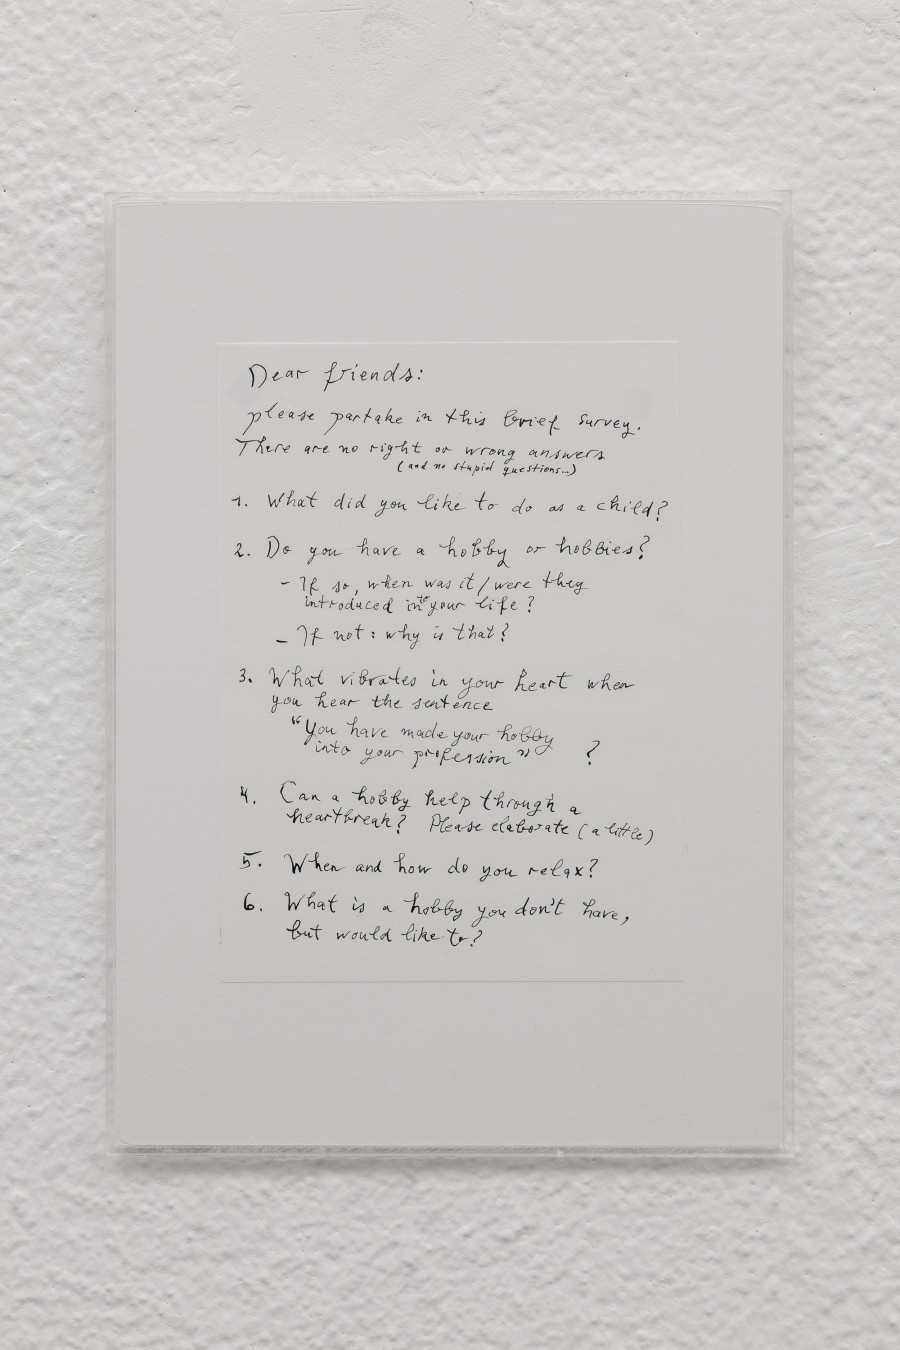 Dear friends:
please partake in this brief survey.
There are no right or wrong answers
(and no stupid questions...)
1. What did you like to do as a child?
2. Do you have a hobby or hobbies?
- If so, when was it/were they
introduced into your life?
- If not: why is that?
3. What vibrates in your heart when
you hear the sentence
"You have made your hobby
into your profession" ?
4. Can a hobby help through a
heartbreak? Please elaborate (a little)
5. When and how do you relax?
6. What is a hobby you don't have,
but would like to?